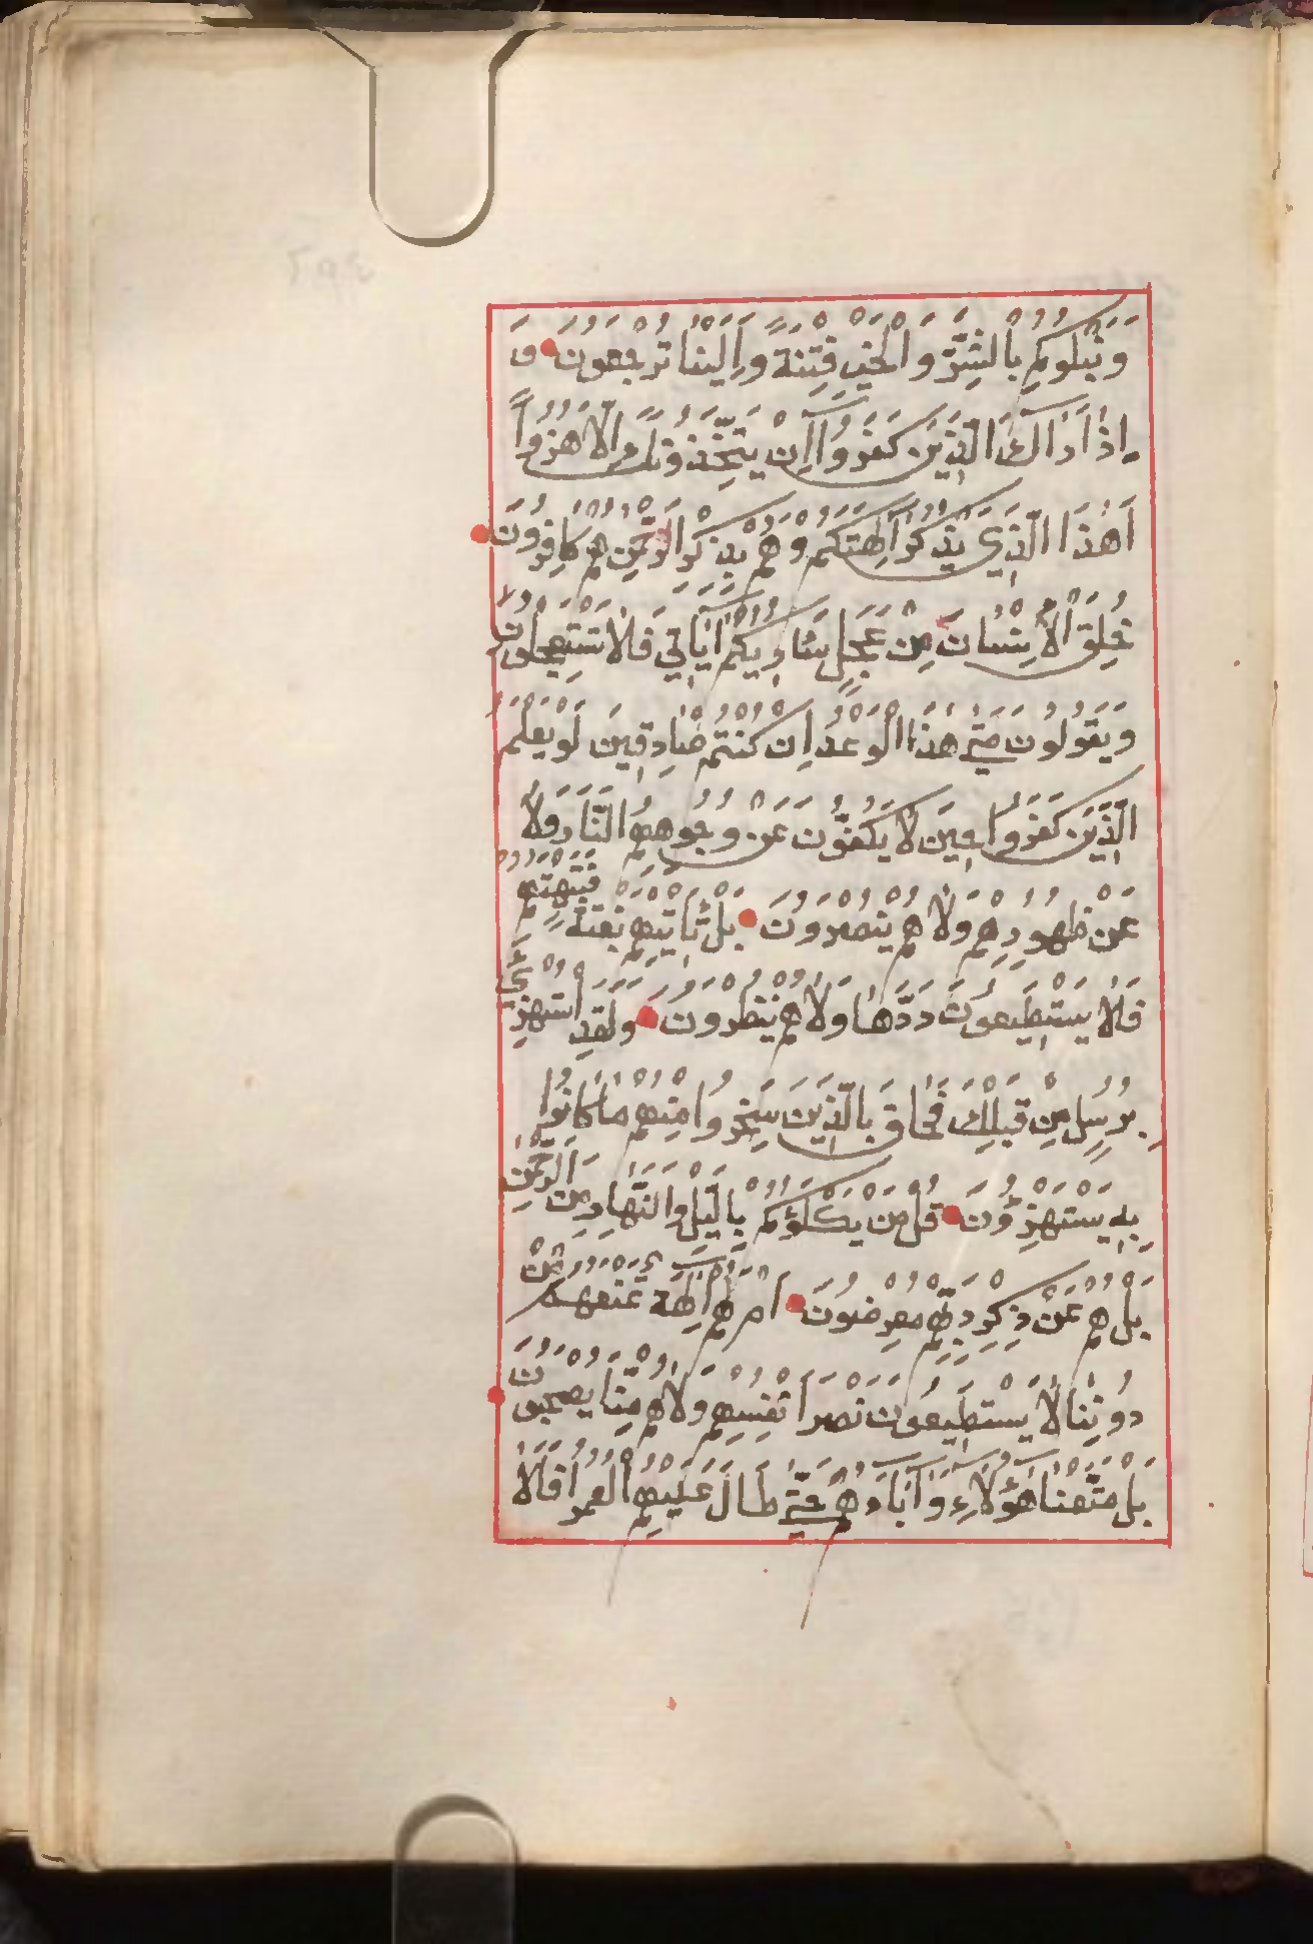 وَنَبْلُوكُمْ بِالشَّرِّ وَالْخَيْرِ فِتْنَةً وَإِلَيْنَا تُرْجَعُونَ وَ
إِذَا رَاكَ الَّذِينَ كَفَرُوا إِنْ يَتَّخِذُونَكَ إِلَّا هُزُوًا
أَهٰذَا الَّذِي يَذْكُرُ آلِهَتَكُمْ وَهُمْ بِذِكْرِ الرَّحْمٰنِ هُمْ كَافِرُونَ
خُلِقَ الْإِنْسَانُ مِنْ عَجَلٍ سَأُورِيكُمْ آيَاتِي فَلَا تَسْتَعْجِلُونِ
وَيَقُولُونَ مَتَى هٰذَا الْوَعْدُ إِنْ كُنْتُمْ صَادِقِينَ لَوْ يَعْلَمُ
الَّذِينَ كَفَرُوا حِينَ لَا يَكُفُّونَ عَنْ وُجُوهِهِمُ النَّارَ وَلَا
عَنْ ظُهُورِهِمْ وَلَا هُمْ يُنْصَرُونَ بَلْ تَأْتِيهِمْ بَغْتَةً فَتَبْهَتُهُمْ
فَلَا يَسْتَطِيعُونَ رَدَّهَا وَلَا هُمْ يُنْظَرُونَ وَلَقَدِ اسْتُهْزِئَ
بِرُسُلٍ مِنْ قَبْلِكَ فَحَاقَ بِالَّذِينَ سَخِرُوا مِنْهُمْ مَا كَانُوا
بِهِ يَسْتَهْزِؤُنَ قُلْ مَنْ يَكْلَؤُكُمْ بِالَّيْلِ وَالنَّهَارِ مِنَ الرَّحْمٰنِ
بَلْ هُمْ عَنْ ذِكْرِ رَبِّهِمْ مُعْرِضُونَ أَمْ لَهُمْ آلِهَةٌ تَمْنَعُهُمْ مِنْ
دُونِنَا لَا يَسْتَطِيعُونَ نَصْرَ أَنْفُسِهِمْ وَلَا هُمْ مِنَّا يُصْحَبُونَ
بَلْ مَتَّعْنَا هٰؤُلَاءِ وَآبَاءَهُمْ حَتَّى طَالَ عَلَيْهِمُ الْعُمُرُ أَفَلَا